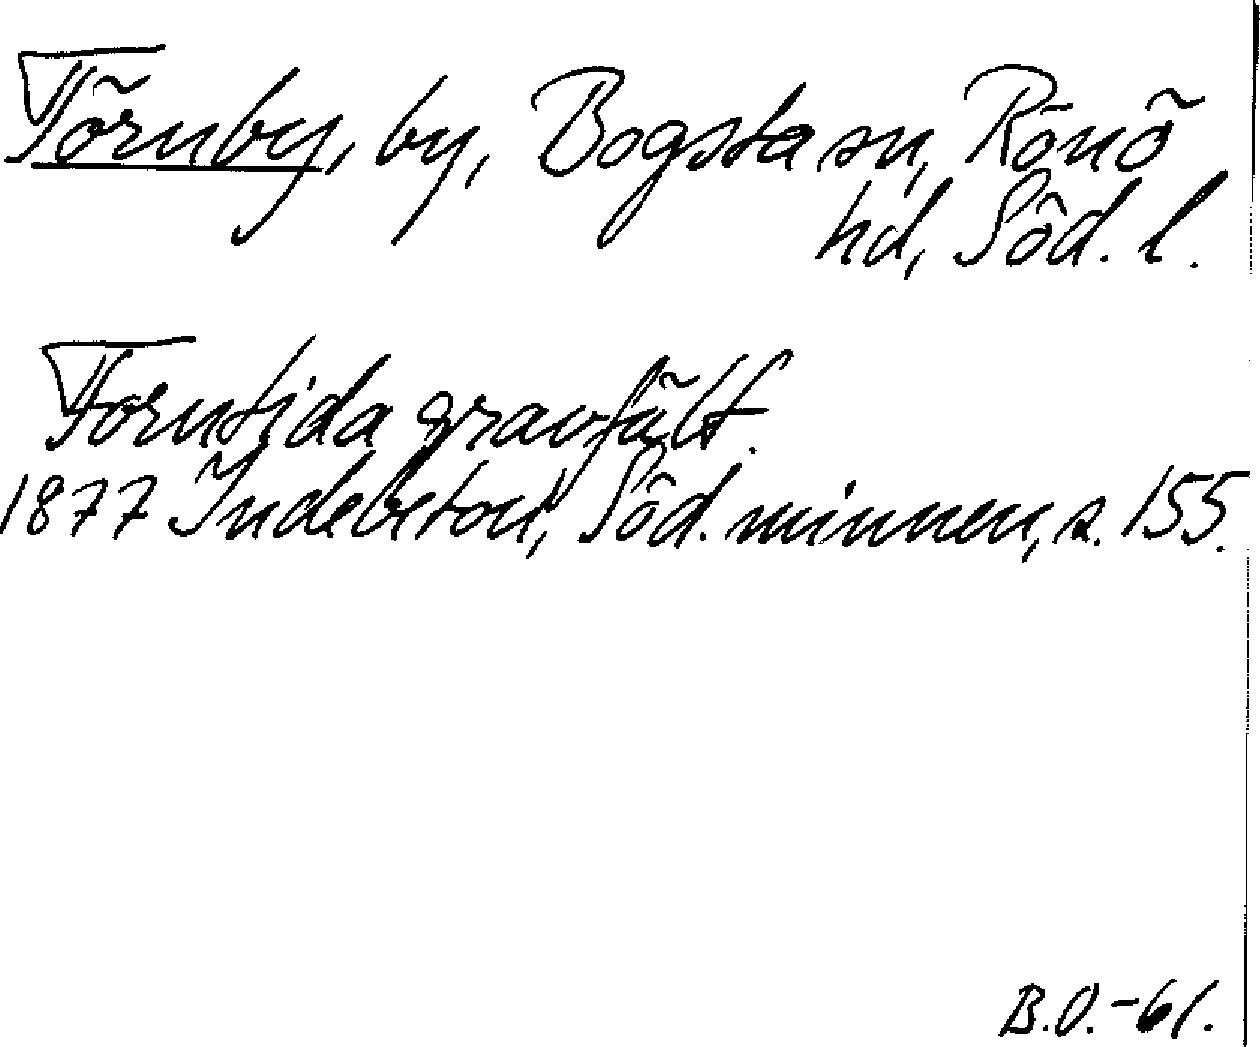 Törnby, by, Bogsta sn, Rönö
hd, Söd. l.
Forntida gravfält.
1877 Indebetou, Söd. minnen, s. 155.
B.O.-61.